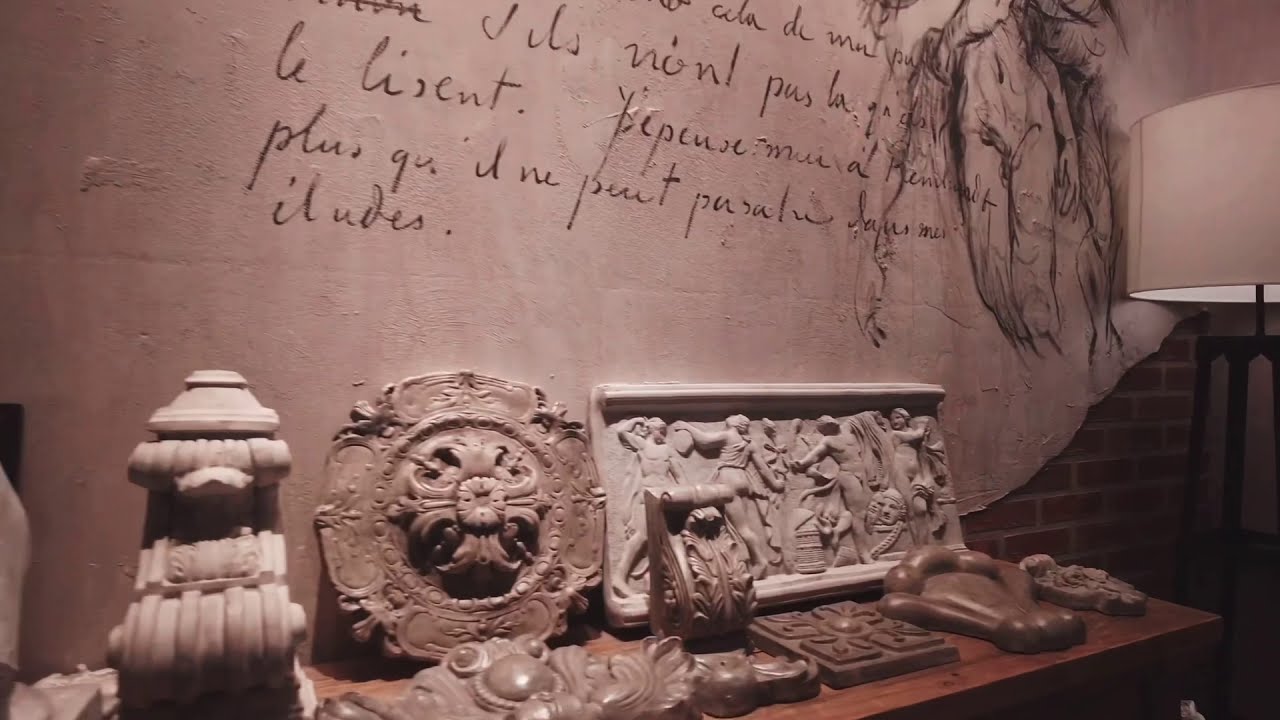 cela de ma
S'ils n'ont pas la qu'ils
le lisent. J'épense à Rembrandt
plus qu'il ne peut paraître dans mes
études.